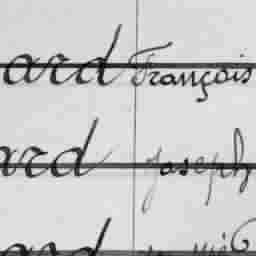 ard François
ard Joseph
ard